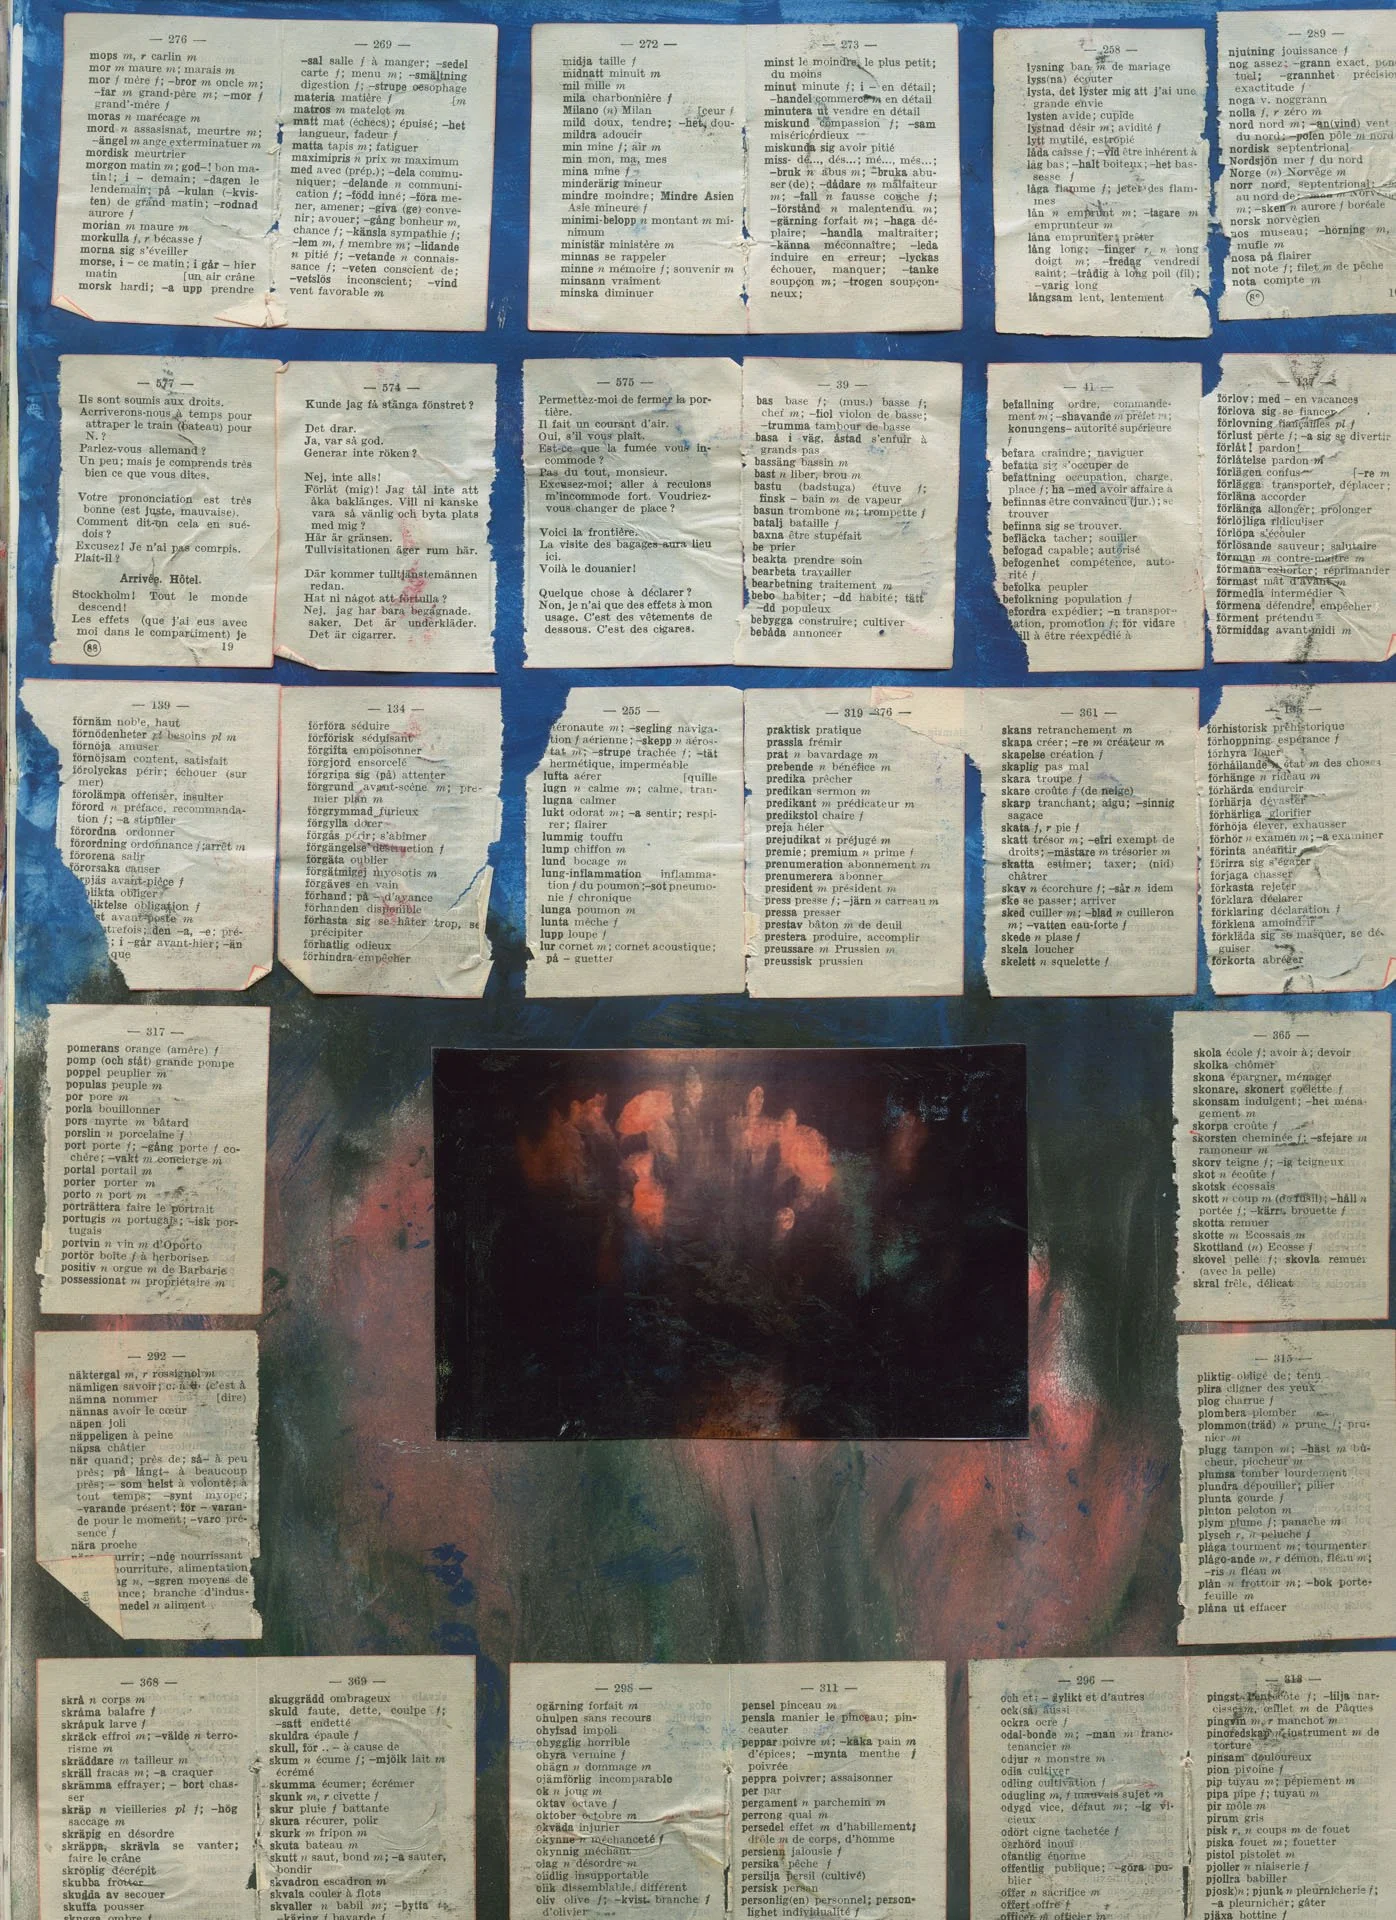 — 276 —
mops m, r carlin m
mor m maure m; marais m
mor f mère f; -bror m oncle m;
-far m grand-père m; -mor f
grand'-mère f
moras n marécage m
mord n assasinat, meurtre m;
-ängel m ange exterminatuer m
mordisk meurtrier
morgon matin m; god-! bon ma-
tin!; i – demain; -dagen le
lendemain; på -kulan (-kvis-
ten) de grand matin; -rodnad
aurore f
morian m maure m
morkulla f, r bécasse f
morna sig s'éveiller
morse, i – ce matin; i går – hier
matin [un air crâne
morsk hardi; -a upp prendre
— 269 —
-sal salle f à manger; -sedel
carte f; menu m; -smältning
digestion f; -strupe oesophage
materia matière f [m
matros m matelot m
matt mat (échecs); épuisé; -het
langueur, fadeur f
matta tapis m; fatiguer
maximipris n prix m maximum
med avec (prép.); -dela commu-
niquer; -delande n communi-
cation f; -född inné; -föra me-
ner, amener; -giva (ge) conve-
nir; avouer; -gång bonheur m,
chance f; -känsla sympathie f;
-lem m, f membre m; -lidande
n pitié f; -vetande n connais-
sance f; -veten conscient de;
-vetslös inconscient; -vind
vent favorable m
— 272 —
midja taille f
midnatt minuit m
mil mille m
mila charbonnière f
Milano (n) Milan [cœur f
mild doux, tendre; -het, dou-
mildra adoucir
min mine f; air m
min mon, ma, mes
mina mine f
minderärig mineur
mindre moindre; Mindre Asien
Asie mineure f
minimi-belopp n montant m mi-
nimum
ministär ministère m
minnas se rappeler
minne n mémoire f; souvenir m
minsann vraiment
minska diminuer
— 273 —
minst le moindre, le plus petit;
du moins
minut minute f; i – en détail;
-handel commerce m en détail
minutera ut vendre en détail
miskund compassion f; -sam
miséricordieux
miskunda sig avoir pitié
miss- dé..., dés...; mé..., més...;
-bruk n abus m; -bruka abu-
ser (de); -dådare m malfaiteur
m; -fall n fausse couche f;
-förstånd n malentendu m;
-gärning forfait m; -haga dé-
plaire; -handla maltraiter;
-känna méconnaître; -leda
induire en erreur; -lyckas
échouer, manquer; -tanke
soupçon m; -trogen soupçon-
neux;
— 258 —
lysning ban m de mariage
lyss(na) écouter
lysta, det lyster mig att j'ai une
grande envie
lysten avide; cupide
lystnad désir m; avidité f
lytt mutilé, estropié
låda caisse f; -vid être inhérent à
låg bas; -halt boiteux; -het bas-
sesse f
låga flamme f; jeter des flam-
mes
lån n emprunt m; -tagare m
emprunteur m
låna emprunter; prêter
lång long; -finger r, n long
doigt m; -fredag vendredi
saint; -trådig à long poil (fil);
-varig long
långsam lent, lentement
— 289 —
njutning jouissance f
nog assez; -grann exact, ponc-
tuel; -grannhet précision
exactitude f
noga v. noggrann
nolla f, r zéro m
nord nord m; -an(vind) vent
du nord; -polen pôle m
nordisk septentrional
Nordsjön mer f du nord
Norge (n) Norvège m
norr nord, septentrional;
au nord de; -man m
m; -sken n aurore f boréale
norsk norvègien
nos museau; -hörning m,
mufle m
nosa på flairer
not note f; filet m de pêche
nota compte m
— 577 —
Ils sont soumis aux droits.
Acrriverons-nous à temps pour
attraper le train (bateau) pour
N. ?
Parlez-vous allemand ?
Un peu; mais je comprends très
bien ce que vous dites.
Votre prononciation est très
bonne (est juste, mauvaise).
Comment dit-on cela en sué-
dois ?
Excusez! Je n'ai pas comrpis.
Plaît-il ?
Arrivée. Hôtel.
Stockholm! Tout le monde
descend!
Les effets (que j'ai eus avec
moi dans le compartiment) je
88 19
— 574 —
Kunde jag få stänga fönstret ?
Det drar.
Ja, var så god.
Generar inte röken ?
Nej, inte alls!
Förlåt (mig)! Jag tål inte att
åka baklänges. Vill ni kanske
vara så vänlig och byta plats
med mig ?
Här är gränsen.
Tullvisitationen äger rum här.
Där kommer tulltjänstemännen
redan.
Hat ni något att förtulla ?
Nej, jag har bara begagnade.
saker. Det är underkläder.
Det är cigarrer.
— 575 —
Permettez-moi de fermer la por-
tière.
Il fait un courant d'air.
Oui, s'il vous plaît.
Est-ce que la fumée vous in-
commode ?
Pas du tout, monsieur.
Excusez-moi; aller à reculons
m'incommode fort. Voudriez-
vous changer de place ?
Voici la frontière.
La visite des bagages aura lieu
ici.
Voilà le douanier!
Quelque chose à déclarer ?
Non, je n'ai que des effets à mon
usage. C'est des vêtements de
dessous. C'est des cigares.
— 39 —
bas bas f; (mus.) basse f;
chef m; -fiol violon de basse;
-trumma tambour de basse
basa i väg, åstad s'enfuir à
grands pas
bassäng bassin m
bast n liber, brou m
bastu (badstuga) étuve f;
finsk – bain m de vapeur
basun trombone m; trompette f
batalj bataille f
baxna être stupéfait
be prier
beakta prendre soin
bearbeta travailler
bearbetning traitement m
bebo habiter; -dd habité; tätt
-dd populeux
bebygga construire; cultiver
bebåda annoncer
— 41 —
befallning ordre, commande-
ment m; -shavande m préfet m;
konungens- autorité supérieure
f
befara craindre; naviguer
befatta sig s'occuper de
befattning occupation, charge,
place f; ha -med avoir affaire à
befinnas être convaincu (jur.); se
trouver
befinna sig se trouver.
befläcka tacher; souiller
befogad capable; autorisé
befogenhet compétence, auto-
rité f
befolka peupler
befolkning population f
efordra expédier; -n transpor-
ation, promotion f; för vidare
ill à être réexpédié à
— 137 —
förlov; med – en vacances
förlova sig se fiancer
förlovning fiançailles pl f
förlust perte f; -a sig se divertir
förlåt! pardon!
förlåtelse pardon m
förlägen confus [-re m
förlägga transporter, déplacer;
förläna accorder
förlänga allonger; prolonger
förlöjliga ridiculiser
förlöpa s'écouler
förlösande sauveur; salutaire
förman m contre-maître m
förmana exhorter; réprimander
förmast mât d'avant m
förmedla intermédier
förmena défendre; empêcher
förment prétendu
förmiddag avant-midi m
— 139 —
förnäm noble, haut
förnödenheter pl besoins pl m
förnöja amuser
förnöjsam content, satisfait
förolyckas périr; échouer (sur
mer)
förolämpa offenser, insulter
förord n préface, recommanda-
tion f; -a stipuler
förordna ordonner
förordning ordonnance f; arrêt m
förorena salir
förorsaka causer
avant-pièce f
plikta obliger
liktelse obligation f
st avant-poste m
utrefois; den -a, -e; pré-
; i -går avant-hier; -än
que
— 134 —
förföra séduire
förförisk séduisant
förgifta empoisonner
förgjord ensorcelé
förgripa sig (på) attenter
förgrund avant-scène m; pre-
mier plan m
förgrymmad furieux
förgylla dorer
förgås périr; s'abîmer
förgängelse destruction f
förgäta oublier
förgätmigej myosotis m
förgäves en vain
förhand; på – d'avance
förhanden disponible
förhasta sig se hâter trop, se
précipiter
förhatlig odieux
förhindra empêcher
— 255 —
aéronaute m; -segling naviga-
tion f aérienne; -skepp n aéros-
tat m; -strupe trachée f; -tät
hermétique, imperméable
lufta aérer [quille
lugn n calme m; calme, tran-
lugna calmer
lukt odorat m; -a sentir; respi-
rer; flairer
lummig touffu
lump chiffon m
lund bocage m
lung-inflammation inflamma-
tion f du poumon; -sot pneumo-
nie f chronique
lunga poumon m
lunta mèche f
lupp loupe f
lur cornet m; cornet acoustique;
på – guetter
— 319 — 376 —
praktisk pratique
prassla frémir
prat n bavardage m
prebende n bénéfice m
predika prêcher
predikan sermon m
predikant m prédicateur m
predikstol chaire f
preja héler
prejudikat n préjugé m
premie; premium n prime f
prenumeration abonnement m
prenumerera abonner
president m président m
press presse f; -järn n carreau m
pressa presser
prestav bâton m de deuil
prestera produire, accomplir
preussare m Prussien m
preussisk prussien
— 361 —
skans retranchement m
skapa créer; -re m créateur m
skapelse création f
skaplig pas mal
skara troupe f
skare croûte f (de neige)
skarp tranchant; aigu; -sinnig
sagace
skata f, r pie f
skatt trésor m; -sfri exempt de
droits; -mästare m trésorier m
skatta estimer; taxer; (nid)
châtrer
skav n écorchure f; -sår n idem
ske se passer; arriver
sked cuiller m; -blad n cuilleron
m; -vatten eau-forte f
skede n plase f
skela loucher
skelett n squelette f
förhistorisk préhistorique
förhoppning espérance f
förhyra louer
förhållande n état m des choses
förhänge n rideau m
förhärda endurcir
förhärja dévaster
förhärliga glorifier
förhöja élever, exhausser
förhör n examen m; -a examiner
förinta anéantir
förirra sig s'égarer
förjaga chasser
förkasta rejeter
förklara déclarer
förklaring déclaration f
förklena amoindrir
förkläda sig se masquer, se dé-
guiser
förkorta abréger
— 317 —
pomerans orange (amère) f
pomp (och ståt) grande pompe
poppel peuplier m
populas peuple m
por pore m
porla bouillonner
pors myrte m bâtard
porslin n porcelaine f
port porte f; -gång porte f co-
chère; -vakt m concierge m
portal portail m
porter porter m
porto n port m
porträttera faire le portrait
portugis m portugais; -isk por-
tugais
portvin n vin m d'Oporto
portör boîte f à herboriser
positiv n orgue m de Barbarie
possessionat m propriétaire m
— 365 —
skola école f; avoir à; devoir
skolka chômer
skona épargner, ménager
skonare, skonert goélette f
skonsam indulgent; -het ména-
gement m
skorpa croûte f
skorsten cheminée f; -sfejare m
ramoneur m
skorv teigne f; -ig teigneux
skot n écoûte f
skotsk écossais
skott n coup m (de fusil); -håll n
portée f; -kärra brouette f
skotta remuer
skotte m Ecossais m
Skottland (n) Ecosse f
skovel pelle f; skovla remuer
(avec la pelle)
skral frêle, délicat
— 292 —
näktergal m, r rossignol m
nämligen savoir; c. à d. (c'est à
nämna nommer [dire)
nännas avoir le cœur
näpen joli
näppeligen à peine
näpsa châtier
när quand; près de; så- à peu
près; på långt- à beaucoup
près; – som helst à volonté; à
tout temps; -synt myope;
-varande présent; för – varan-
de pour le moment; -varo pré-
sence f
nära proche
urrir; -nde nourrissant
nourriture, alimentation
ng n, -sgren moyens de
ance; branche d'indus-
medel n aliment
— 315 —
pliktig obligé de; tenu
plira cligner des yeux
plog charrue f
plombera plomber
plommon(träd) n prune f; pru-
nier m
plugg tampon m; -häst m bû-
cheur, piocheur m
plumsa tomber lourdement
plundra dépouiller; piller
plunta gourde f
pluton peloton m
plym plume f; panache m
plysch r, n peluche f
plåga tourment m; tourmenter
plågo-ande m, r démon, fléau m;
-ris n fléau m
plån n frottoir m; -bok porte-
feuille m
plåna ut effacer
— 368 —
skrå n corps m
skråma balafre f
skråpuk larve f
skräck effroi m; -välde n terro-
risme m
skräddare m tailleur m
skräll fracas m; -a craquer
skrämma effrayer; – bort chas-
ser
skräp n vieilleries pl f; -hög
saccage m
skräpig en désordre
skräppa, skrävla se vanter;
faire le crâne
skröplig décrépit
skubba frotter
skudda av secouer
skuffa pousser
skugga ombre f
— 369 —
skuggrädd ombrageux
skuld faute, dette, coulpe f;
-satt endetté
skuldra épaule f
skull, för .. – à cause de
skum n écume f; -mjölk lait m
écrémé
skumma écumer; écrémer
skunk m, r civette f
skur pluie f battante
skura récurer, polir
skurk m fripon m
skuta bateau m
skutt n saut, bond m; -a sauter,
bondir
skvadron escadron m
skvala couler à flots
skvaller n babil m; -bytta
-käring f bavarde f
— 298 —
ogärning forfait m
ohulpen sans recours
ohyfsad impoli
ohygglig horrible
ohyra vermine f
ohägn n dommage m
ojämförlig incomparable
ok n joug m
oktav octave f
oktober octobre m
okväda injurier
okynne n méchanceté f
okynnig méchant
olag n désordre m
olidlig insupportable
olik dissemblable, différent
oliv olive f; -kvist branche f
d'olivier
— 311 —
pensel pinceau m
pensla manier le pinceau; pin-
ceauter
peppar poivre m; -kaka pain m
d'épices; -mynta menthe f
poivrée
peppra poivrer; assaisonner
per par
pergament n parchemin m
perrong quai m
persedel effet m d'habillement;
drôle m de corps, d'homme
persienn jalousie f
persika pêche f
persilja persil (cultivé)
persisk persan
personlig(en) personnel; person-
lighet individualité f
— 296 —
och et; – dylikt et d'autres
ock(så) aussi
ockra ocre f
odal-bonde m; -man m franc-
tenancier m
odjur n monstre m
odla cultiver
odling cultivation f
odugling m, f mauvais sujet m
odygd vice, défaut m; -ig vi-
cieux
odört cigne tachetée f
oerhörd inouï
ofantlig énorme
offentlig publique; -göra pu-
blier
offer n sacrifice m
offert offre f
officer m officier m
— 313 —
pingst Pentecôte f; -lilja nar-
cisse m, œillet m de Pâques
pingvin m, r manchot m
pinoredskap n instrument m de
torture
pinsam douloureux
pion pivoine f
pip tuyau m; pépiement m
pipa pipe f; tuyau m
pir môle m
pirum gris
pisk r, n coups m de fouet
piska fouet m; fouetter
pistol pistolet m
pjoller n niaiserie f
pjollra babiller
pjosk) n; pjunk n pleurnicherie f;
-a pleurnicher; gâter
pjäxa bottine f